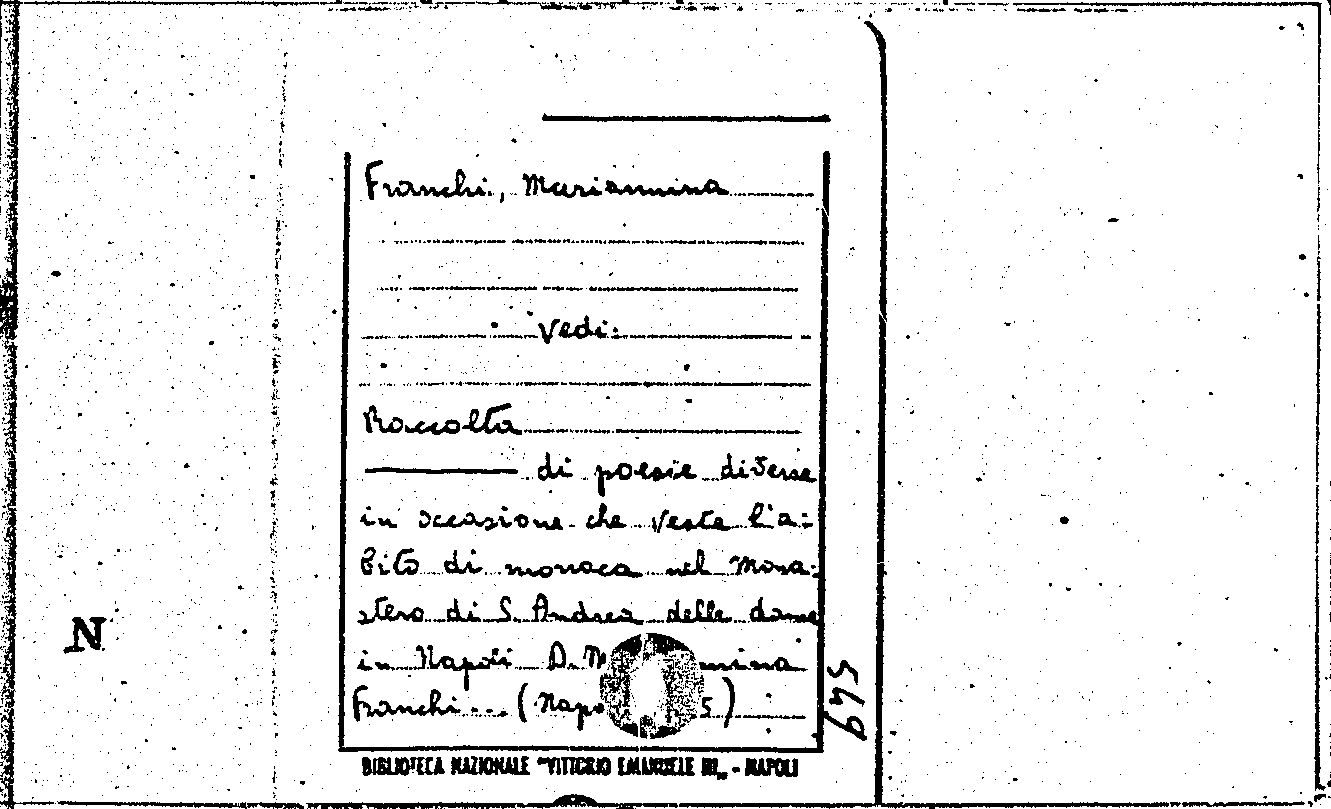 Franchi, Mariannina
Vedi:
Raccolta
di poesie diverse
in occasione che veste l'a=
bito di monaca nel Mona=
stero di S. Andrea delle dame
in Napoli D. M nnina
Franchi... (Napo 5)
649
N
BIBLIOTECA NAZIONALE "VITTORIO EMANUELE III" - NAPOLI